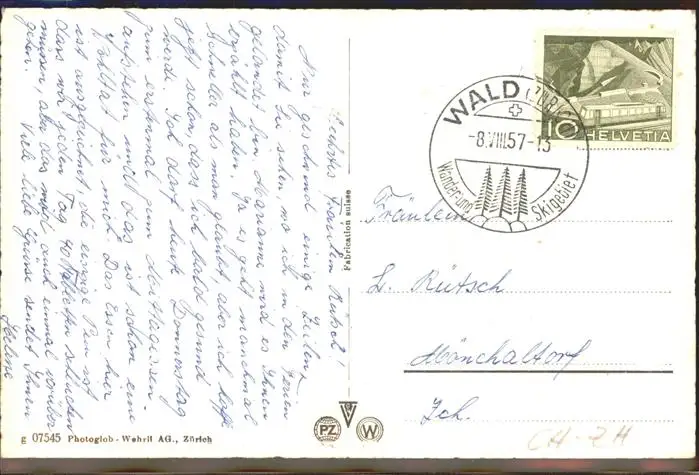 Liebes Fräulein Rütsch!
Nur geschwind einige Zeilen,
damit Sie sehen, wo ich in den Ferien
gelandet bin. Marianne wird es Ihnen
erzählt haben. Ja es geht manchmal
schneller als man glaubt, aber ich hoffe
jetzt schon, dass ich bald gesund
werde. Ich darf heute Donnerstag
zum erstenmal zum Mittagessen
aufstehen und das ist schon eine
für mich. Das Essen hier
ist ausgezeichnet, die einzige ist
dass wir jeden Tag Tabletten schlucken
müssen, aber das wird auch einmal vorüber
gehen. Viele liebe Grüsse sendet Ihnen
Fabrication suisse
WALD (ZÜRICH)
-8.VIII.57-13
Wander- und Skigebiet
10 HELVETIA
Fräulein
L. Rütsch
Mönchaltorf
Zch.
CH-ZH
g 07545 Photoglob-Wehrli AG., Zürich
PZ
W